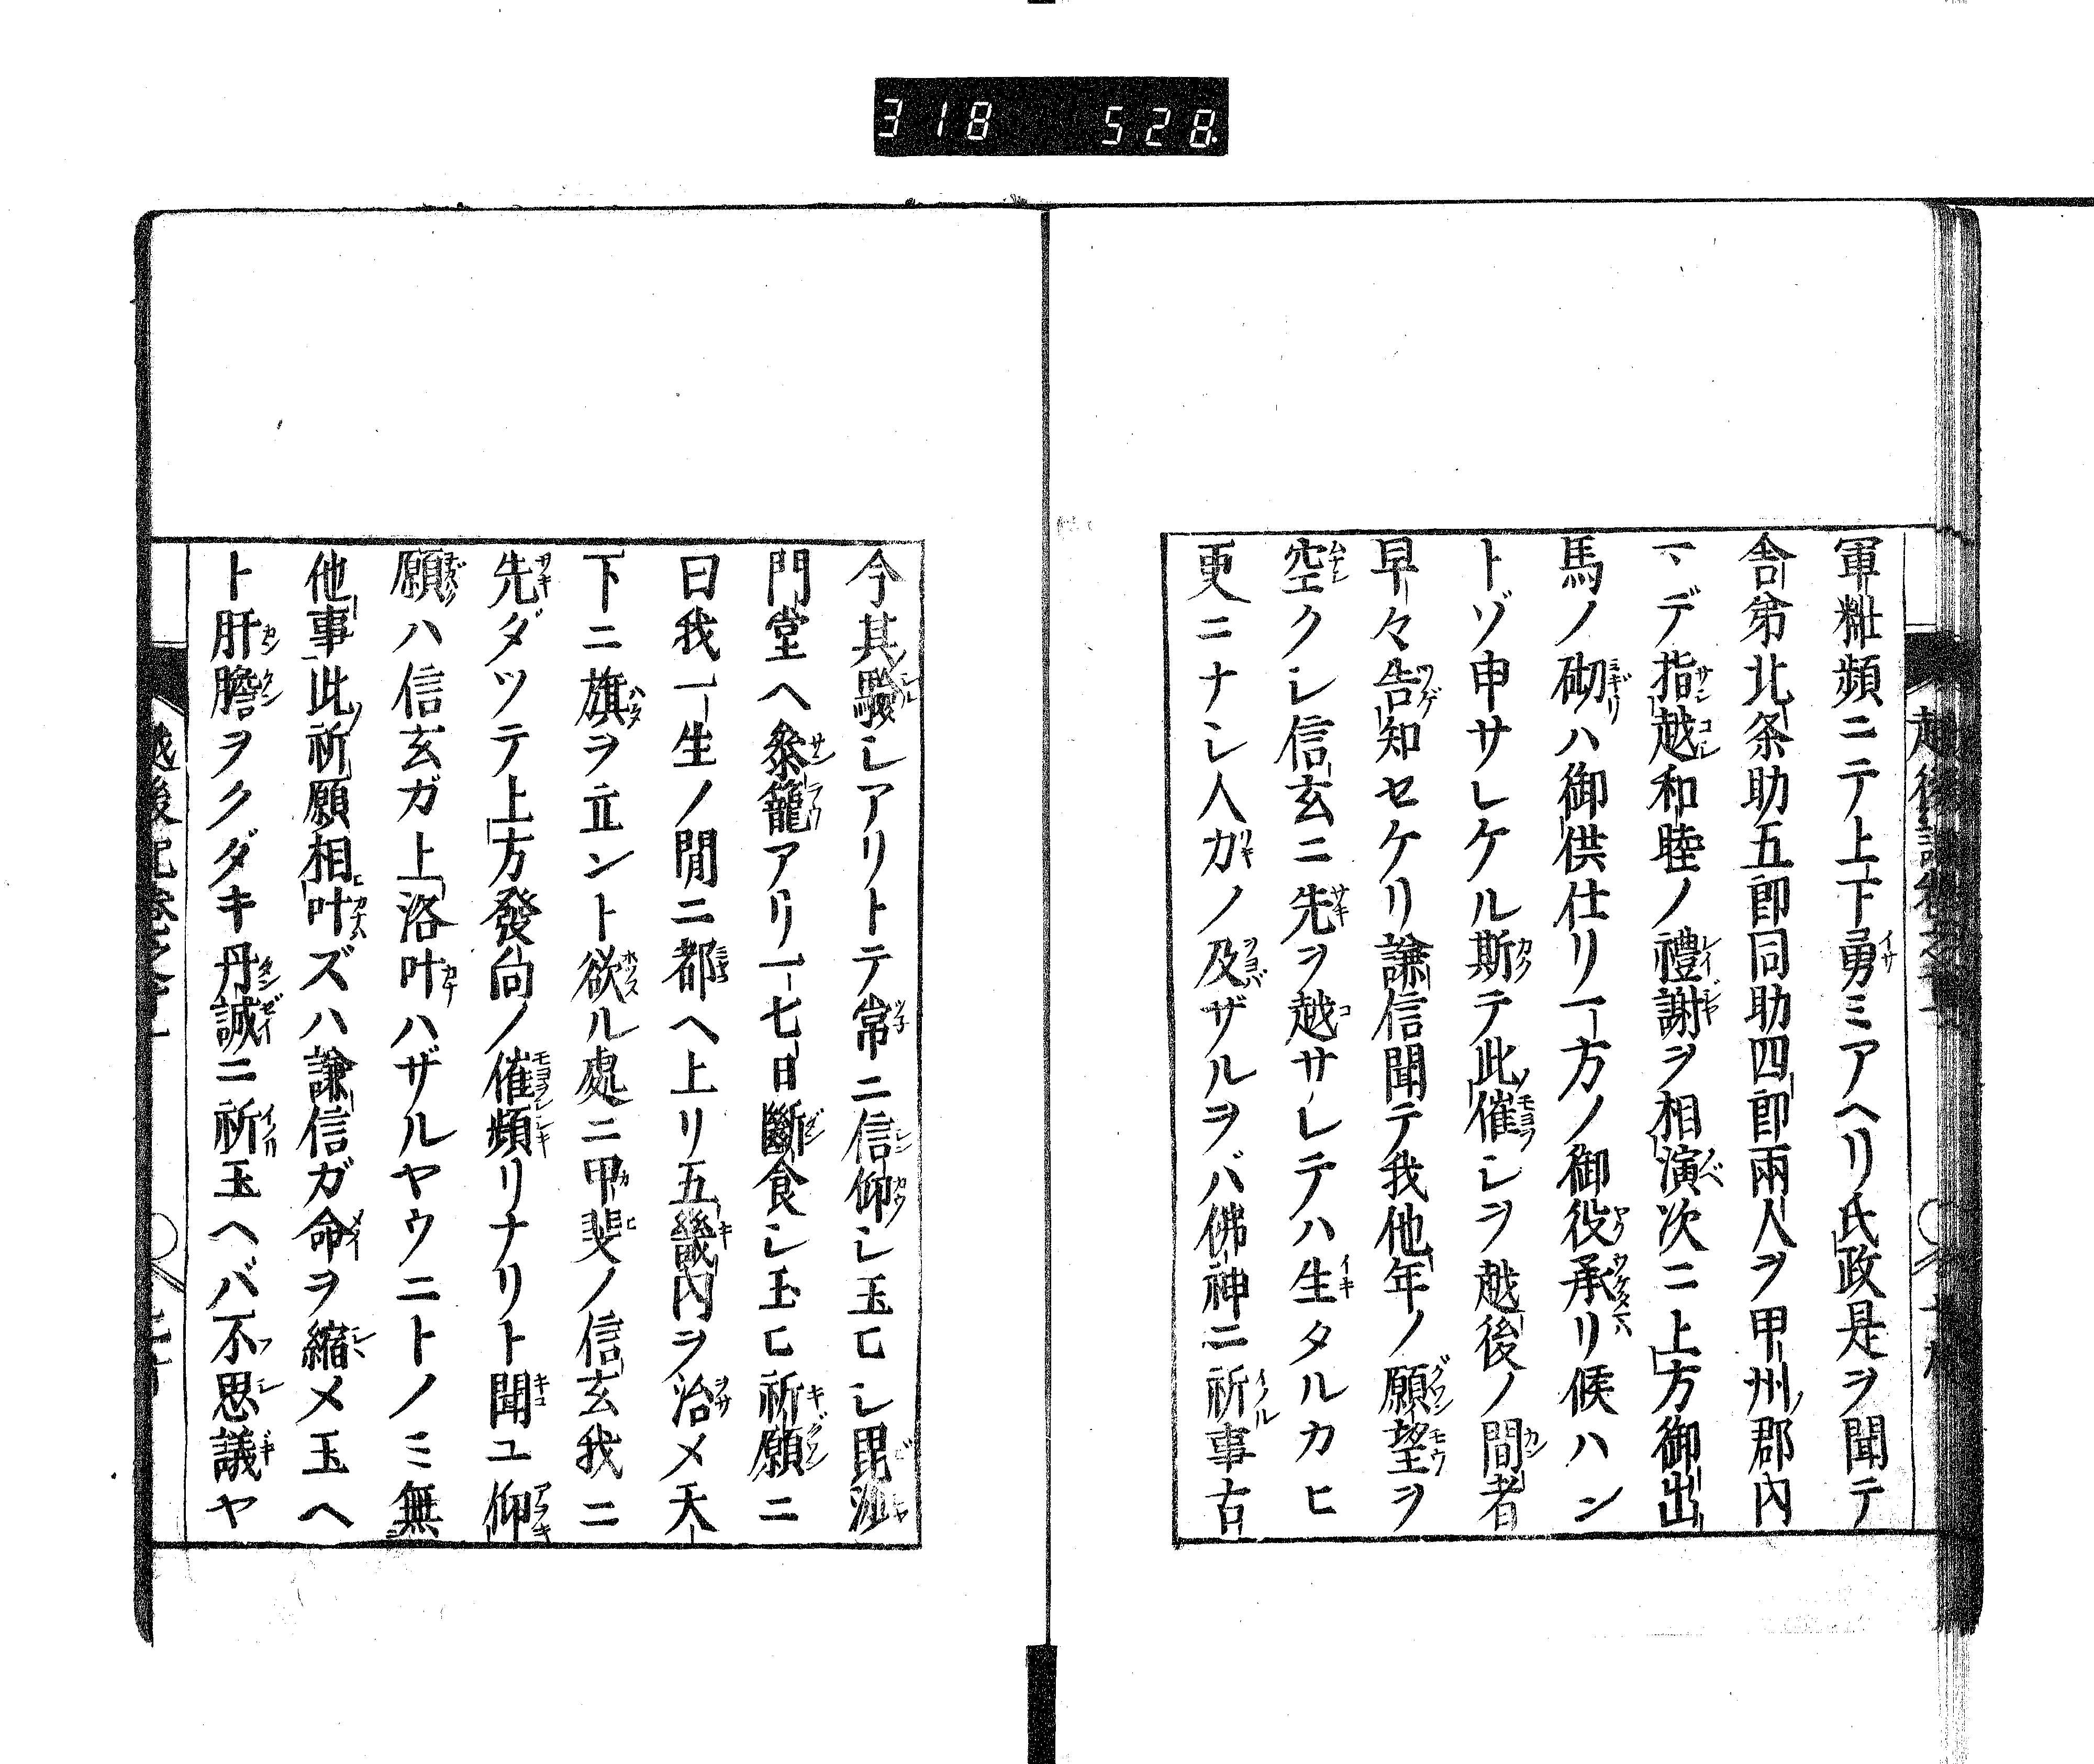 318 528
軍粧頻ニテ上下勇ミアヘリ氏政是ヲ聞テ
舎弟北条助五郎同助四郎兩人ヲ甲州郡内
マデ指越和睦ノ禮謝ヲ相演次ニ上方御出
馬ノ砌ハ御供仕リ一方ノ御役承リ候ハン
トゾ申サレケル斯テ此催シヲ越後ノ間者
早々告知セケリ謙信聞テ我他年ノ願望ヲ
空クシ信玄ニ先ヲ越サレテハ生タルカヒ
更ニナシ人力ノ及ザルヲバ佛神ニ祈事古
今其驗シアリトテ常ニ信仰シ玉ヒシ毘沙
門堂ヘ参籠アリ一七日斷食シ玉ヒ祈願ニ
曰我一生ノ間ニ都ヘ上リ五畿内ヲ治メ天
下ニ旗ヲ立ント欲ル處ニ甲斐ノ信玄我ニ
先ダツテ上方發向ノ催頻リナリト聞ユ仰
願ハ信玄ガ上洛叶ハザルヤウニトノミ無
他事此祈願相叶ズハ謙信ガ命ヲ縮メ玉ヘ
ト肝膽ヲクダキ丹誠ニ祈玉ヘバ不思議ヤ
越後記巻之十一